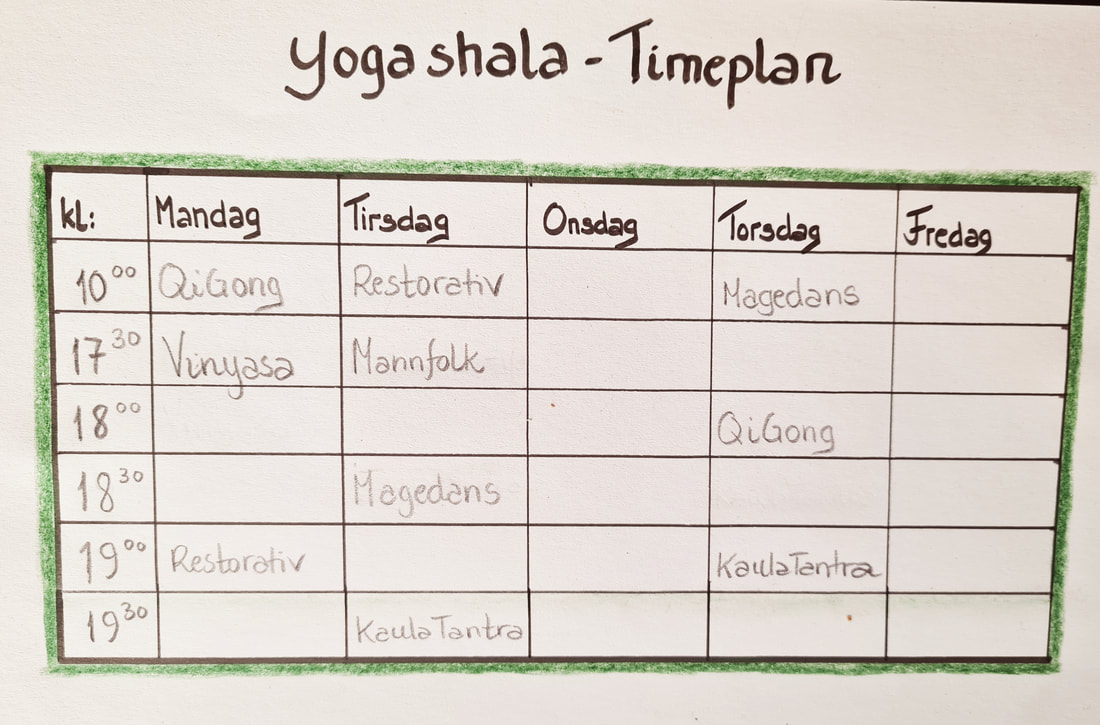 Yogashala - Timeplan
kl: Mandag Tirsdag Onsdag Torsdag Fredag
10⁰⁰ QiGong Restorativ Magedans
17³⁰ Vinyasa Mannfolk
18⁰⁰ QiGong
18³⁰ Magedans
19⁰⁰ Restorativ KaulaTantra
19³⁰ KaulaTantra